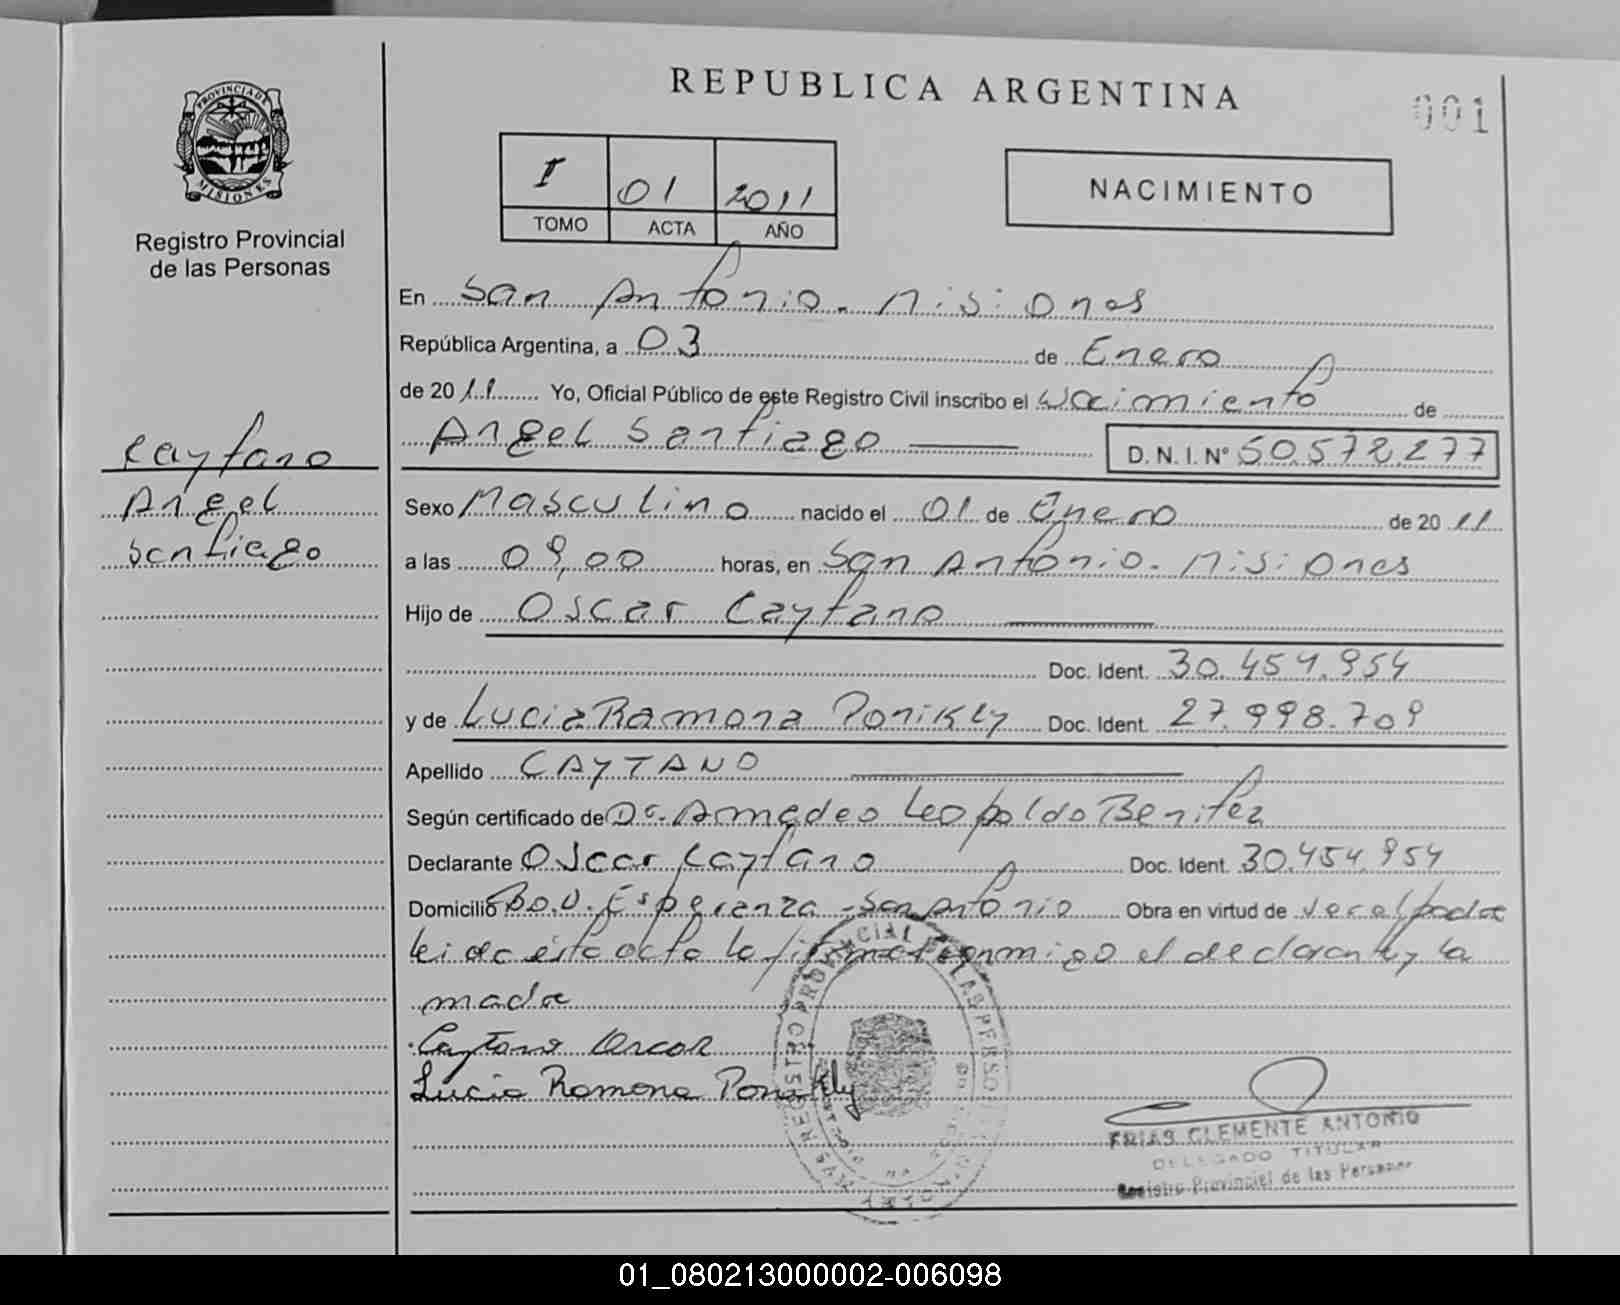 REPUBLICA ARGENTINA
001
PROVINCIA DE
MISIONES
Registro Provincial
de las Personas
I 01 2011
TOMO ACTA AÑO
NACIMIENTO
En San Antonio - Misiones
República Argentina, a 03 de Enero
de 2011 Yo, Oficial Público de este Registro Civil inscribo el Nacimiento de
Angel Santiago D. N. I. Nº 50.572.277
Caytano
Angel
Santiago
Sexo Masculino nacido el 01 de Enero de 2011
a las 09,00 horas, en San Antonio - Misiones
Hijo de Oscar Caytano
Doc. Ident. 30.454.954
y de Lucia Ramona Ponikly Doc. Ident. 27.998.709
Apellido CAYTANO
Según certificado de Dr. Amadeo Leopoldo Benitez
Declarante Oscar Caytano Doc. Ident. 30.454.954
Domicilio B° N. Esperanza - San Antonio Obra en virtud de ser el padre
leida ésta acta la firman conmigo el declarante y la
madre
Caytano Oscar
Lucia Ramona Ponikly
REGISTRO PROVINCIAL DE LAS PERSONAS
FRIAS CLEMENTE ANTONIO
DELEGADO TITULAR
Registro Provincial de las Personas
01_080213000002-006098